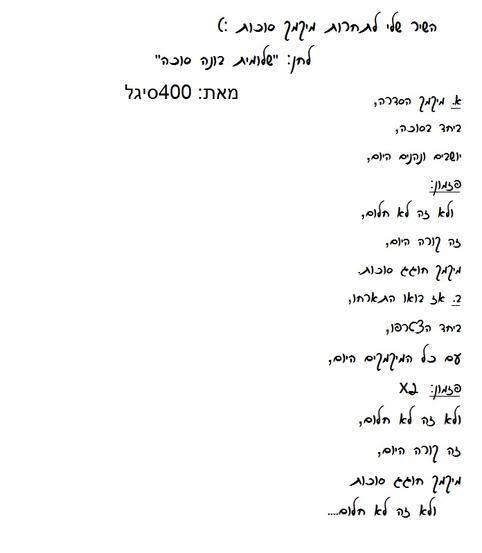 השיר שלי לתחרות מיקמק סוכות :)
לחן: "שלומית בונה סוכה"
מאת: 400סיגל
א. מיקמק הסדרה,
ביחד בסוכה,
יושבים ונהנים היום,
פזמון:
ולא זה לא חלום,
זה קורה היום,
מיקמק חוגג סוכות.
ב. אז בואו התארחו,
ביחד הצטרפו,
עם כל המיקמקים היום,
פזמון: X2
ולא זה לא חלום,
זה קורה היום,
מיקמק חוגג סוכות
ולא זה לא חלום....